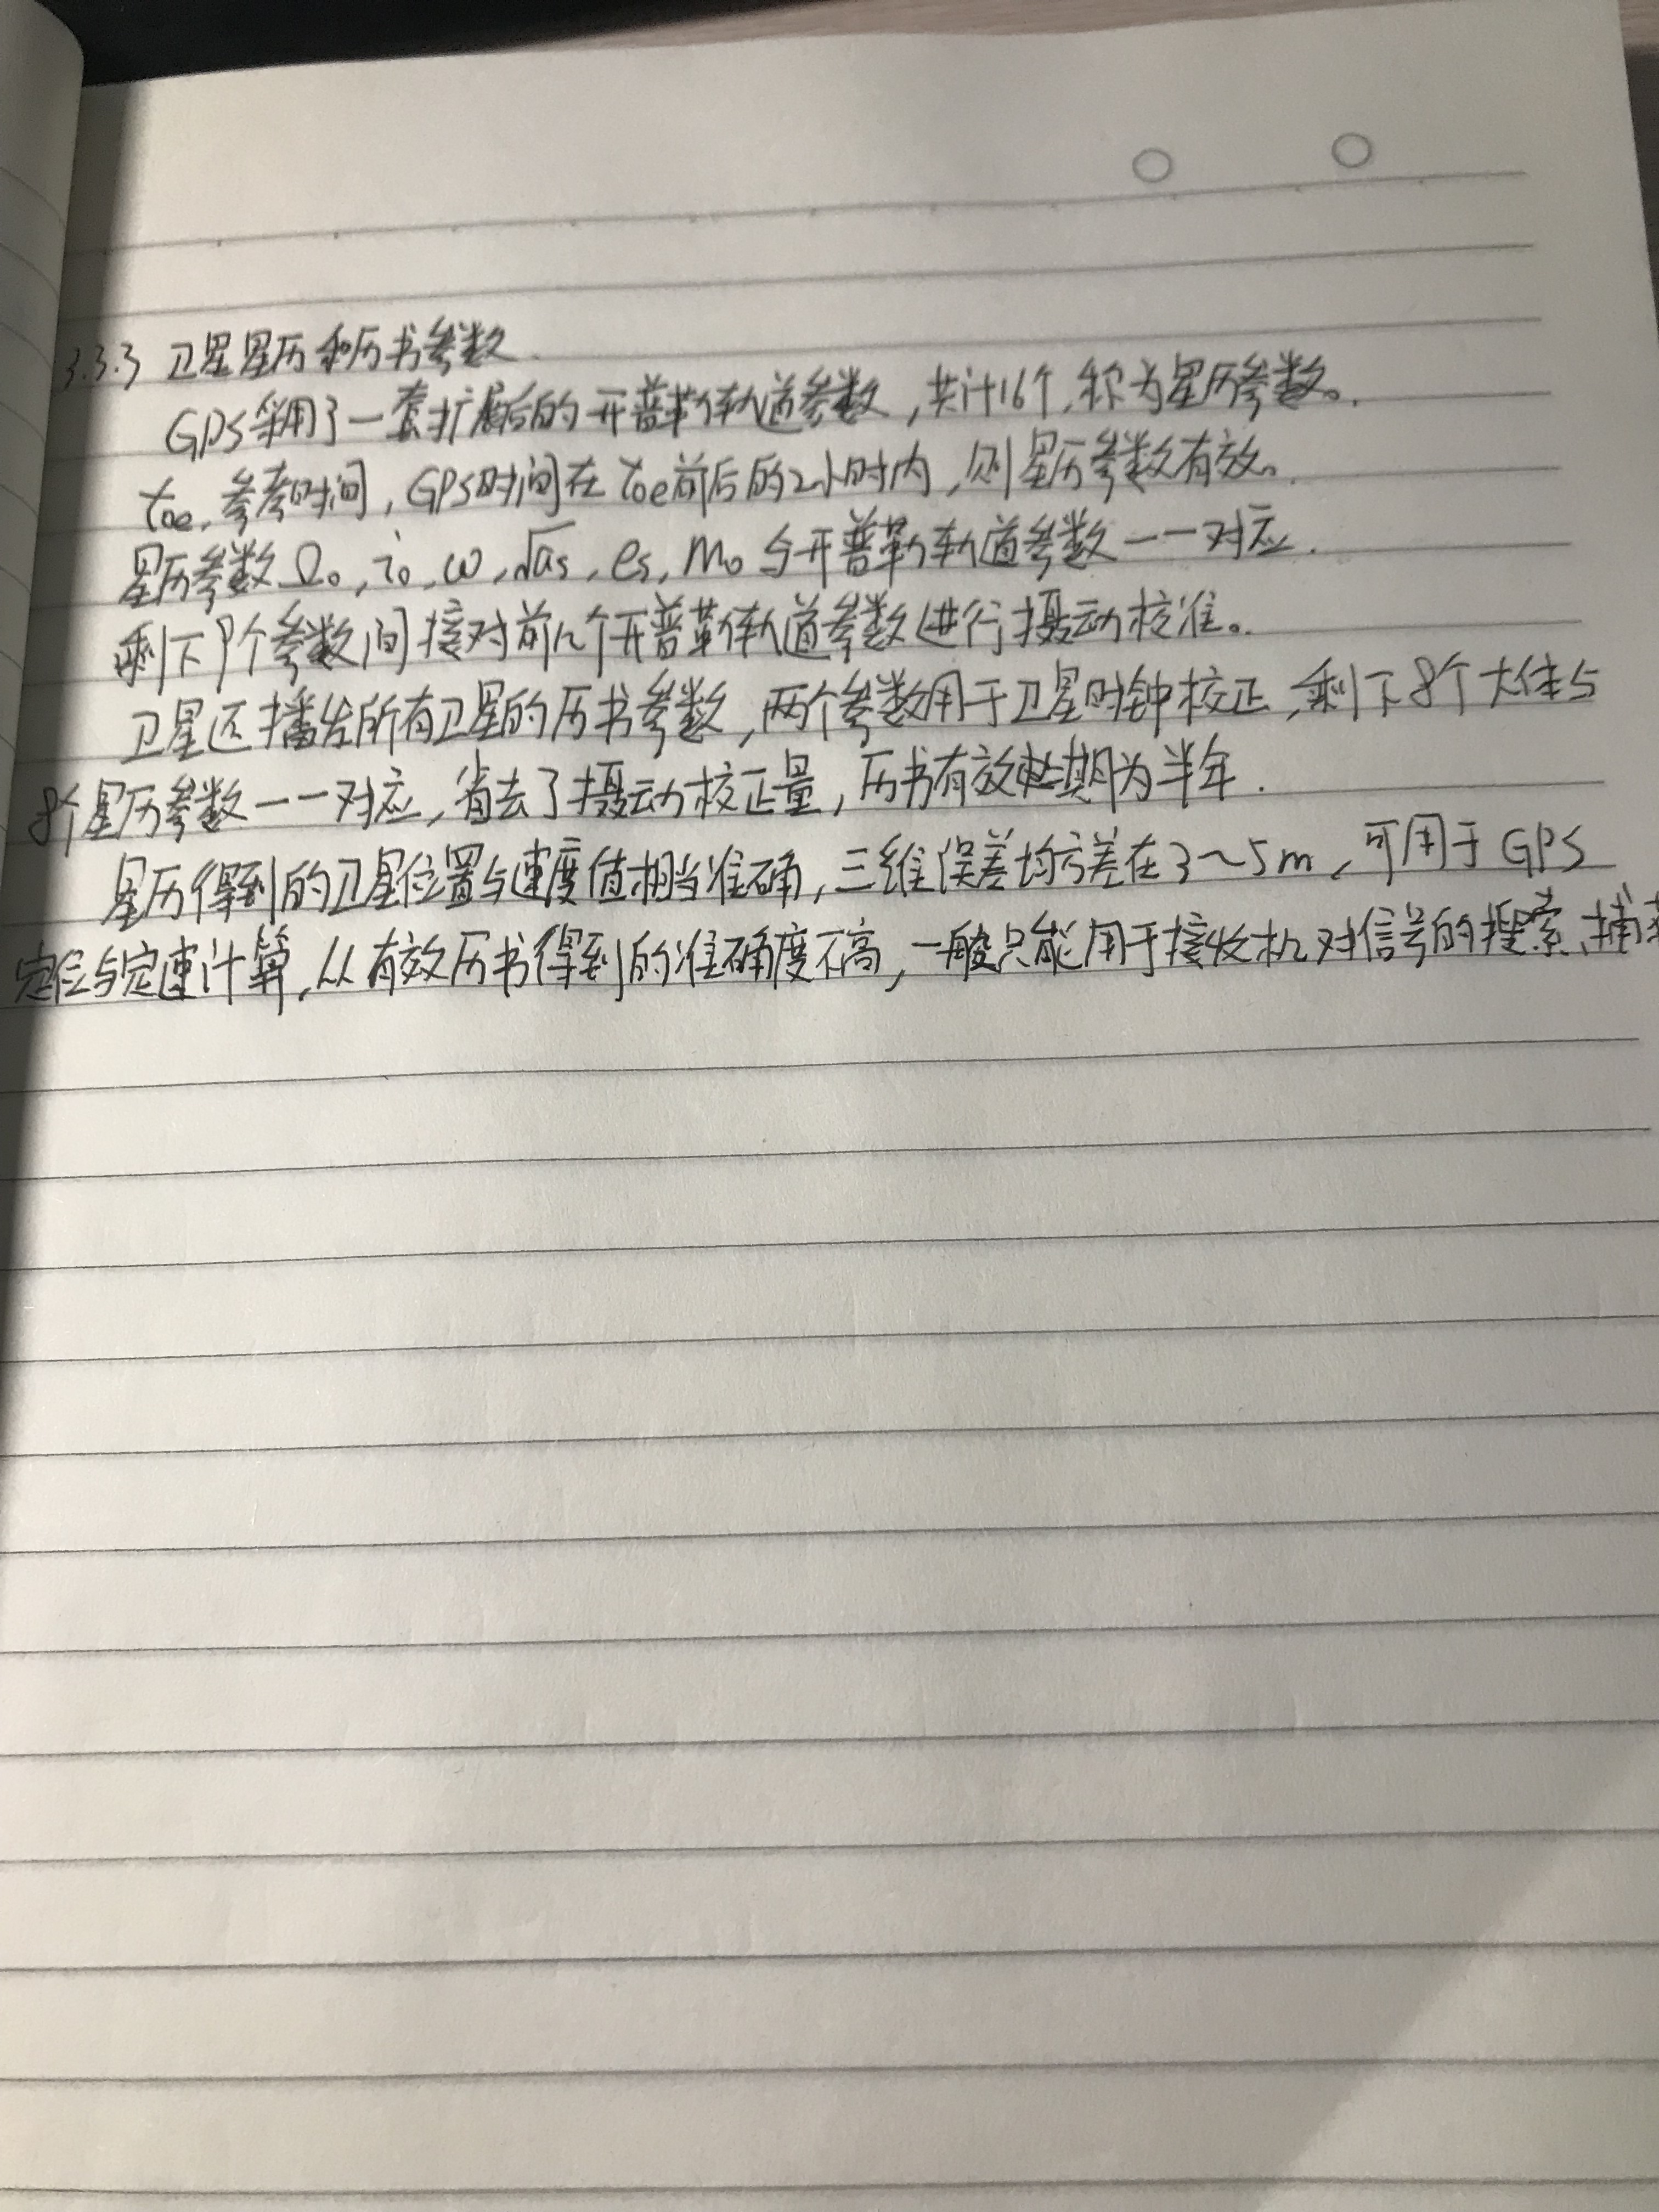 3.3.3 卫星星历和历书参数.
GPS采用了一套扩展后的开普勒轨道参数，共计16个，称为星历参数。
toe，参考时间，GPS时间在toe前后的2小时内，则星历参数有效。
星历参数Ω₀，i₀，ω，√as，es，M₀与开普勒轨道参数一一对应.
剩下9个参数间接对前几个开普勒轨道参数进行摄动校准。
卫星还播发所有卫星的历书参数，两个参数用于卫星时钟校正，剩下8个大体与
8个星历参数一一对应，省去了摄动校正量，历书有效期为半年.
星历得到的卫星位置与速度值相当准确，三维误差均方差在3～5m，可用于GPS
定位与定速计算，从有效历书得到的准确度不高，一般只能用于接收机对信号的搜索、捕